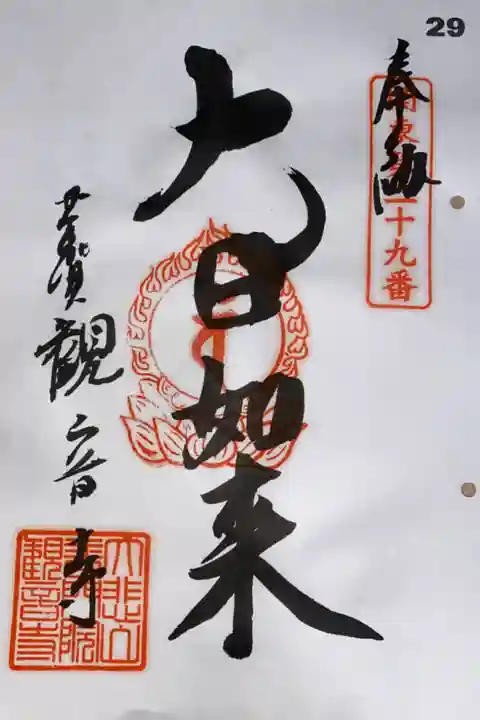 29
奉納
関東二十九番
大日如来
芳賀観音寺
大悲山
院
観音寺